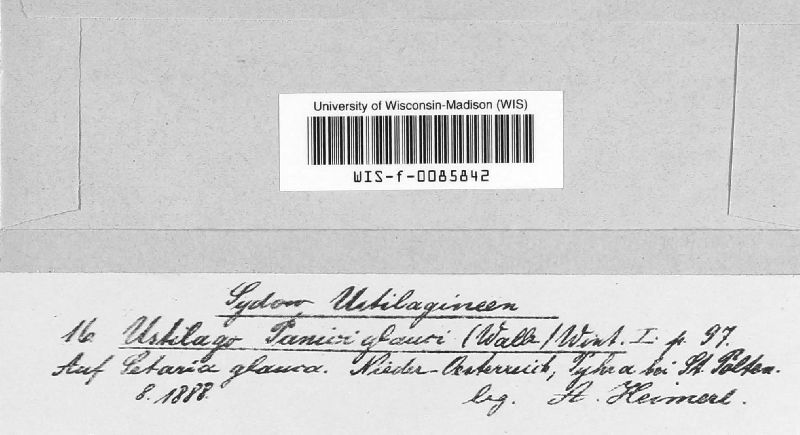 University of Wisconsin-Madison (WIS)
WIS-f-0085842
Sydow Ustilagineen
16. Ustilago Panici glauci (Wallr/Wint. I. p. 97.
Auf Setaria glauca. Nieder-Oesterreich, Pyhra bei St. Pölten.
8. 1888. leg. A. Heimerl.